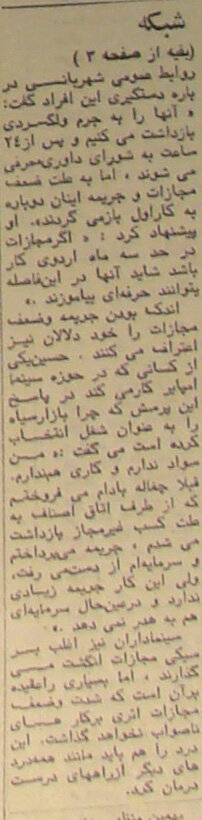 شبکه
(بقیه از صفحه ۳ )
روابط عمومی شهربانی در
باره دستگیری این افراد گفت:
« آنها را به جرم ولگردی
بازداشت می کنیم و پس از ۲۴
ساعت به شورای داوری معرفی
می شوند ، اما به علت ضعف
مجازات و جریمه اینان دوباره
به کار اول باز می گردند». او
پیشنهاد کرد : « اگر مجازات
در حد سه ماه اردوی کار
باشد شاید آنها در این فاصله
بتوانند حرفه‌ای بیاموزند .»
اندک بودن جریمه وضعف
مجازات را خود دلالان نیز
اعتراف می کنند . حسین یکی
از کسانی که در حوزه سینما
امپایر کار می کند در پاسخ
این پرسش که چرا بازار سیاه
را به عنوان شغل انتخاب
کرده است می گفت :« من
سواد ندارم و کاری هم ندارم.
قبلا چغاله بادام می فروختم
که از طرف اتاق اصناف به
علت کسب غیرمجاز بازداشت
می شدم ، جریمه می‌پرداختم
و سرمایه‌ام از دست می رفت.
ولی این کار جریمه زیادی
ندارد و درعین‌حال سرمایه‌ای
هم به هدر نمی دهد .»
سینماداران نیز اغلب بر
سبکی مجازات انگشت می
گذارند ، اما بسیاری را عقیده
بر آن است که شدت وضعف
مجازات اثری بر کار های
ناصواب نخواهد گذاشت. این
درد را هم باید مانند همه درد
های دیگر از راههای درست
درمان کرد.